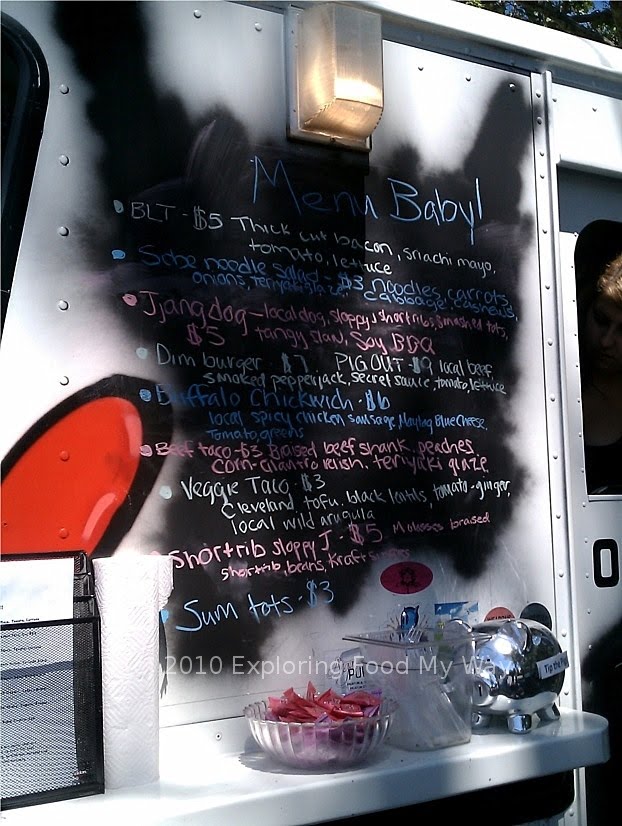 Menu Baby!
BLT - $5 Thick cut bacon, sriachi mayo,
tomato, lettuce
Sobe noodle salad - $3 noodles, carrots,
onions, teriyaki glaze, cabbage, cashews,
Jjangdog - local dog, sloppy j shortribs, smashed tots,
$5 tangy slaw, Soy BBQ
Dim burger $7 PIGOUT - $9 local beef,
smoked pepperjack, secret sauce, tomato, lettuce
Buffalo Chickwich - $6
local spicy chicken sausage, Maytag Blue Cheese,
Tomato, greens
Beef taco - $3 Braised beef shank, peaches
corn-cilantro relish, teriyaki glaze
Veggie Taco $3
Cleveland tofu, black lentils, tomato-ginger,
local wild arugula
Shortrib sloppy J - $5 Molasses braised
shortrib, beans, Kraft
Sum tots - $3
©2010 Exploring Food My Way
Tip the
O